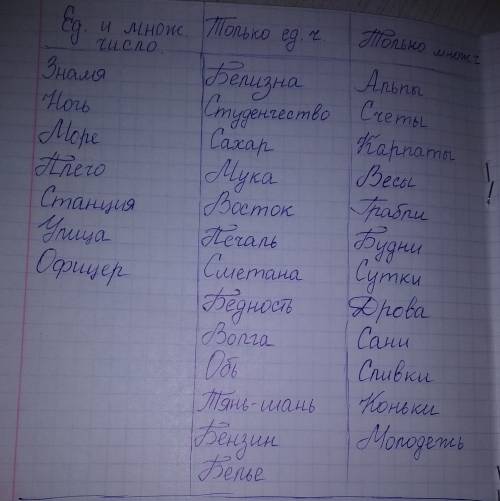 Ед. и множ. Только ед. ч. Только множ. ч
число.
Знамя Белизна Альпы
Ночь Студенчество Счеты
Море Сахар Карпаты
Плечо Мука Весы
Станция Восток Грабли
Улица Печаль Будни
Офицер Сметана Сутки
Бедность Дрова
Волга Сани
Обь Сливки
Тянь-шань Коньки
Бензин Молодежь
Белье